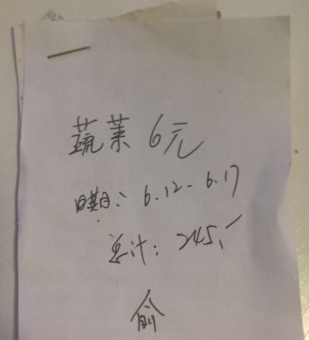 蔬菜6元
日期：6.12-6.17
总计：245.-
俞